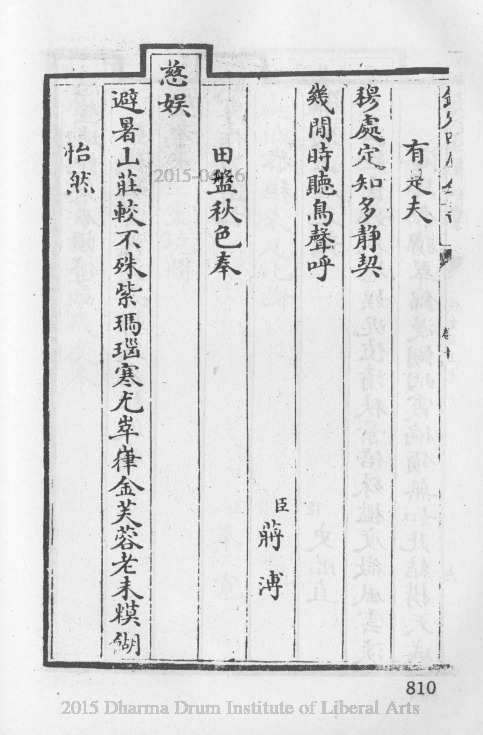 有是夫
穆處定知多静契
幾閒時聽鳥聲呼
臣蔣溥
田盤秋色奉
慈娱
避暑山莊較不殊紫瑪瑙寒尤崒嵂金芙蓉老未糢餬
怡然
810
2015-04-16
2015 Dharma Drum Institute of Liberal Arts